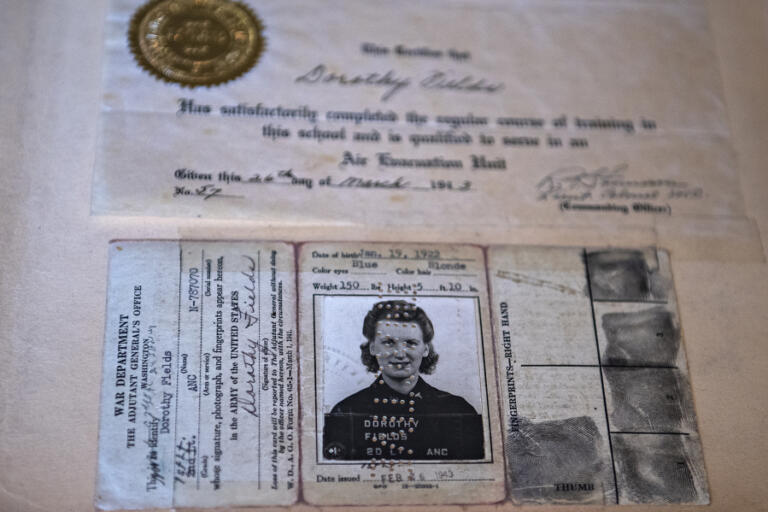 This Certifies that
Dorothy Fields
Has satisfactorily completed the regular course of training in
this school and is qualified to serve in an
Air Evacuation Unit
Given this 26th day of March 1943
No. 57
(Commanding Officer)
WAR DEPARTMENT
THE ADJUTANT GENERAL'S OFFICE
WASHINGTON
Dorothy Fields
(Name)
ANC N-787070
(Grade) (Arm or service) (Serial number)
whose signature, photograph, and fingerprints appear hereon,
in the ARMY of the UNITED STATES
Dorothy Fields
(Signature of officer)
Loss of this card will be reported to The Adjutant General without delay
W. D., A. G. O. Form No. 65-2—March 1, 1941
Date of birth Jan. 19, 1922
Blue Blonde
Color eyes Color hair
Weight 150 lbs. Height 5 ft. 10 in.
DOROTHY
FIELDS
2D LT ANC
Date issued FEB 26 1943
GPO
FINGERPRINTS—RIGHT HAND
THUMB
1
3